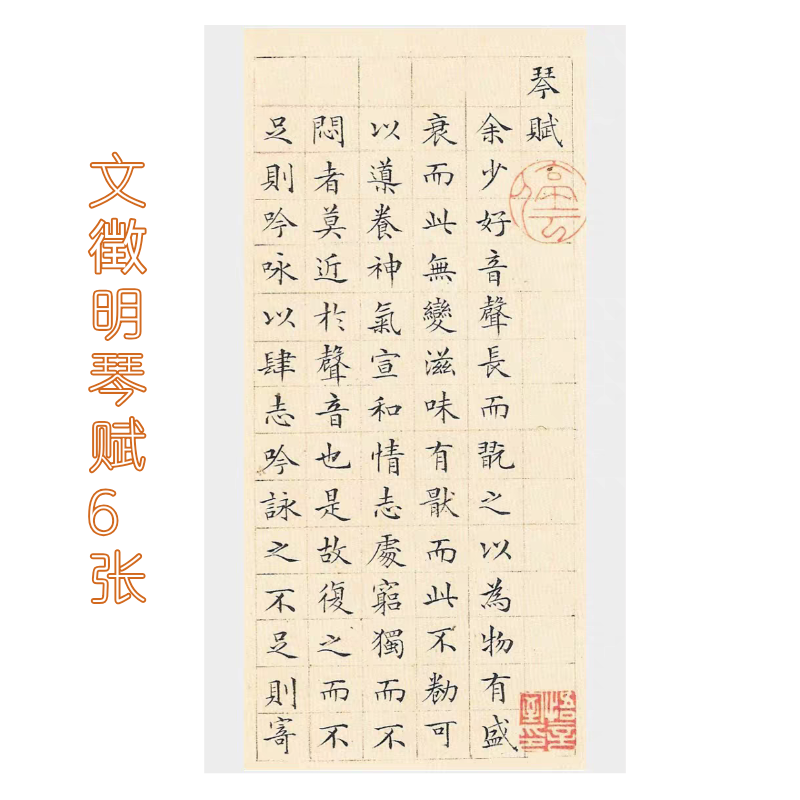 文徵明琴赋6张
琴賦
余少好音聲長而翫之以為物有盛
衰而此無變滋味有猒而此不勌可
以導養神氣宣和情志處窮獨而不
悶者莫近於聲音也是故復之而不
足則吟咏以肆志吟詠之不足則寄